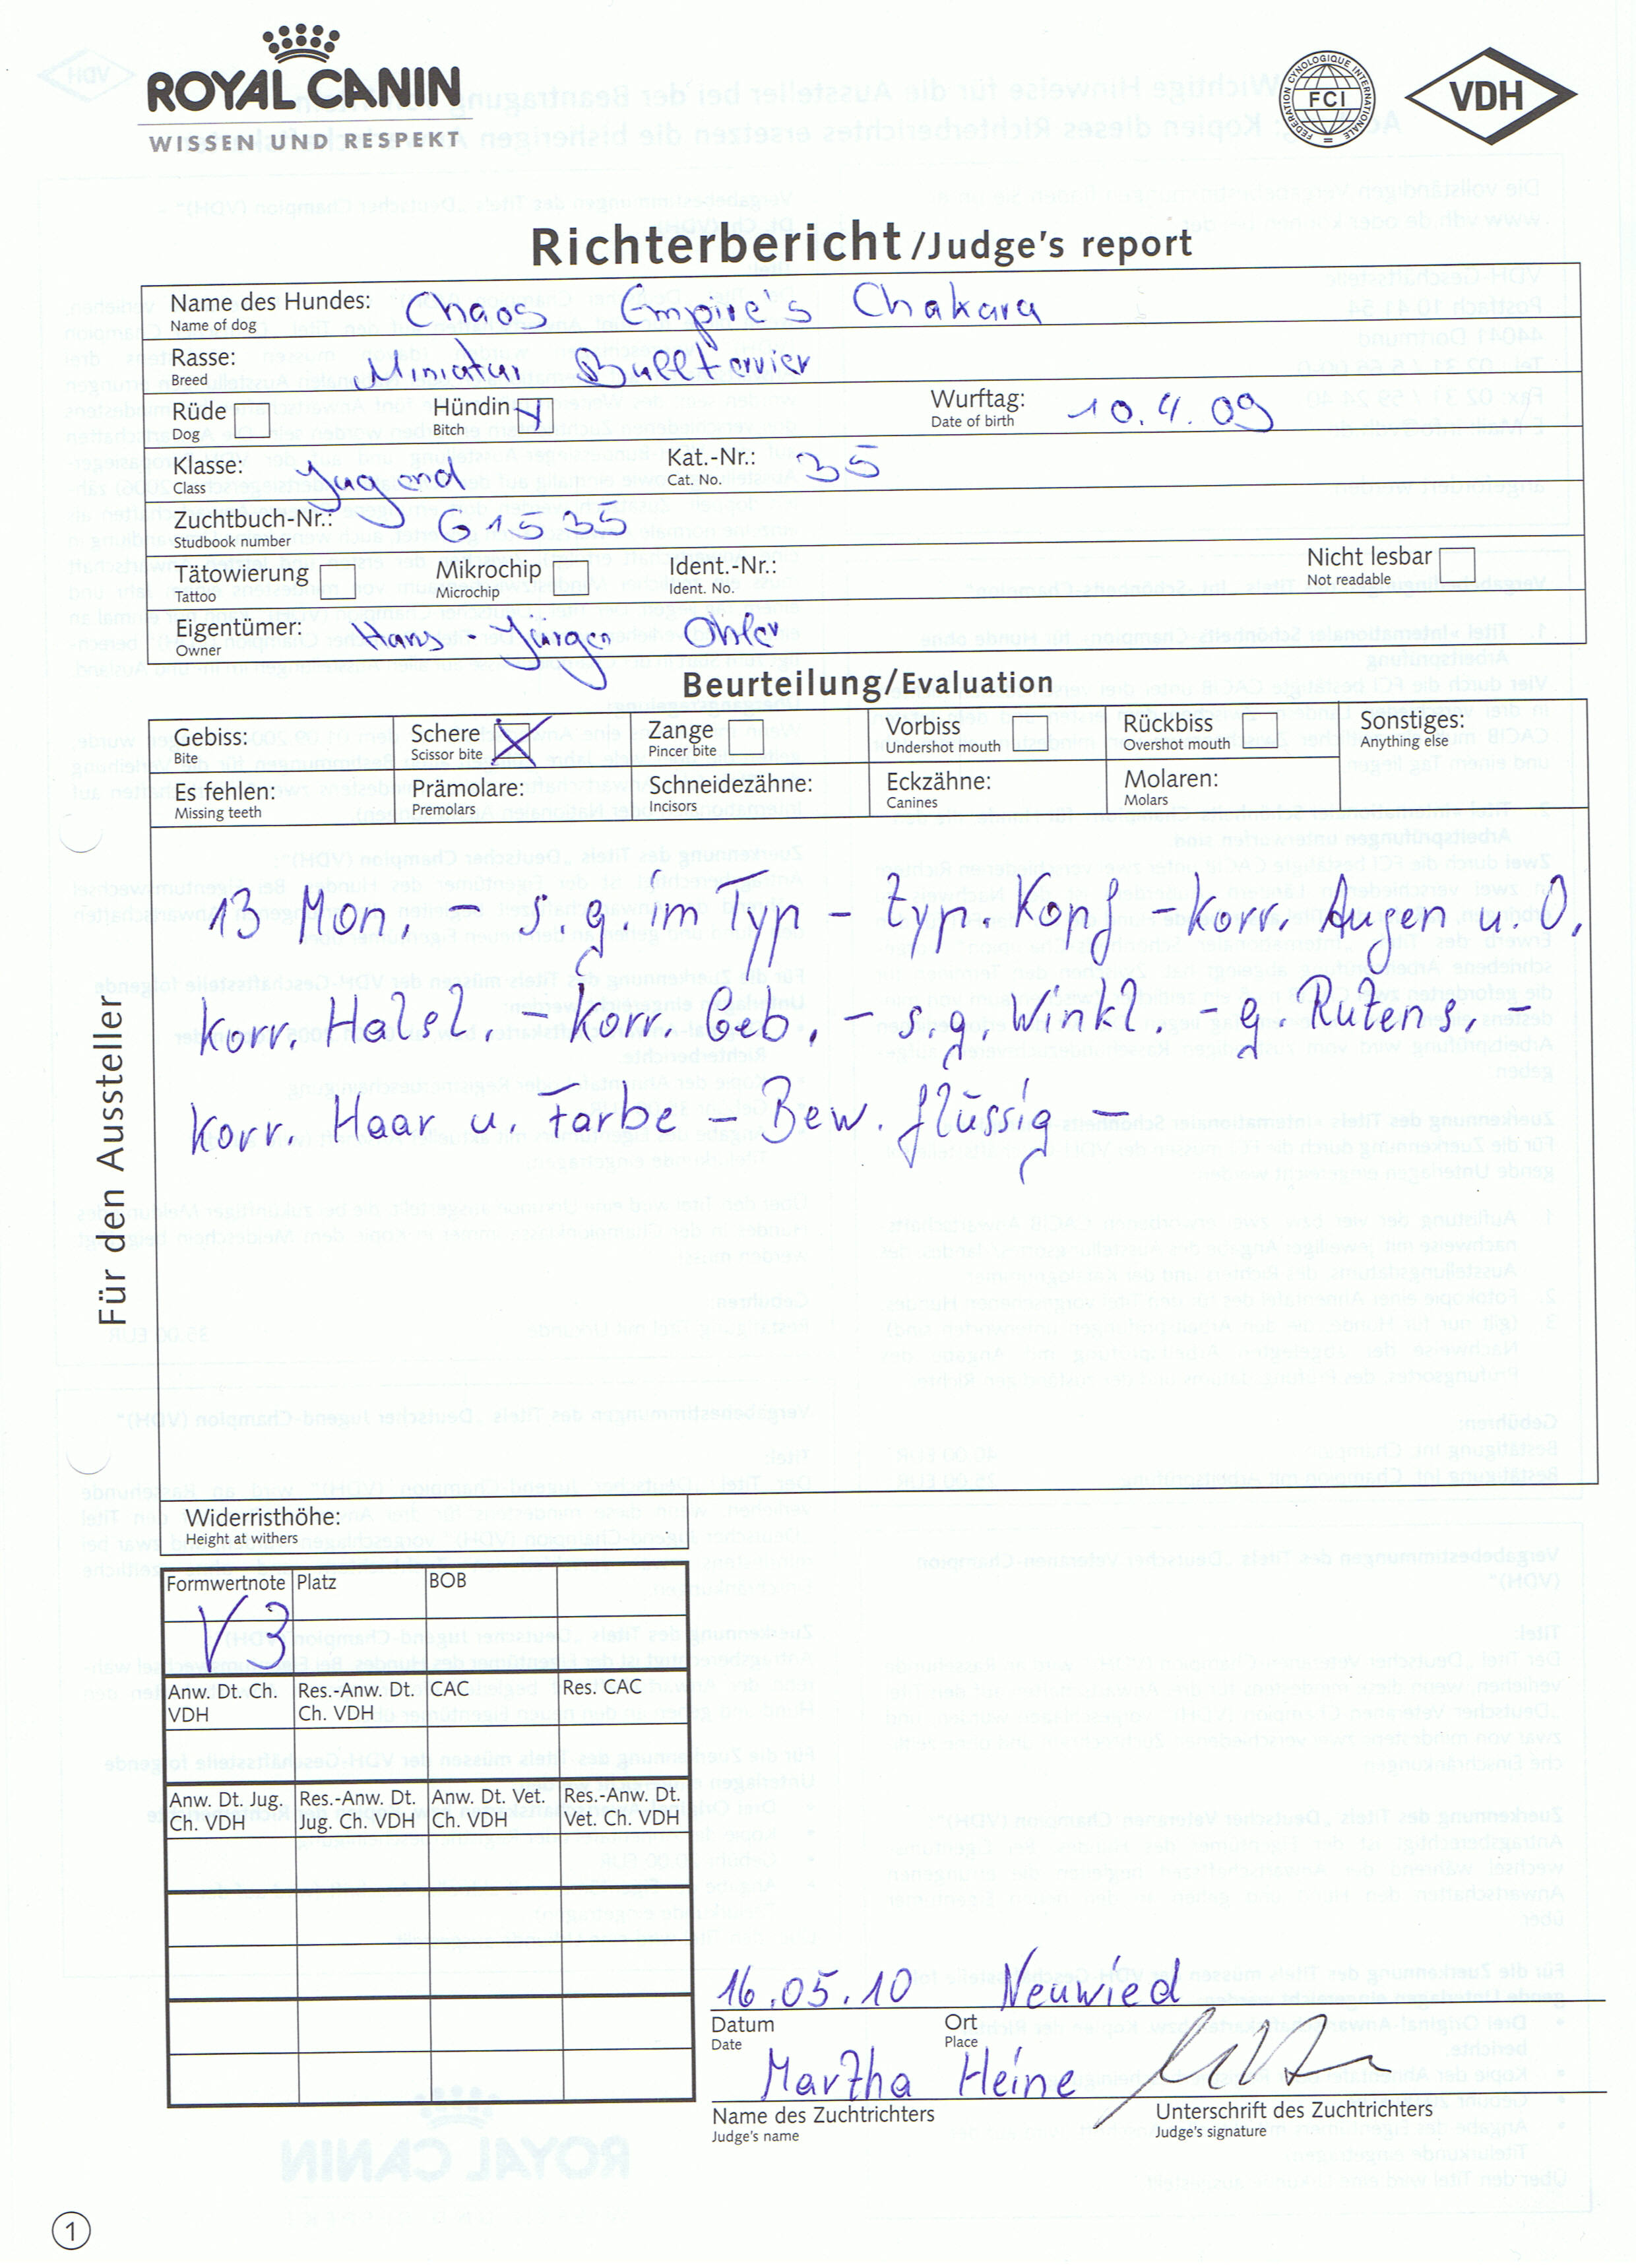 ROYAL CANIN
WISSEN UND RESPEKT
FEDERATION CYNOLOGIQUE INTERNATIONALE
FCI
VDH
Richterbericht/Judge's report
Name des Hundes: Chaos Empire's Chakara
Name of dog
Rasse: Miniatur Bullterrier
Breed
Rüde Hündin Wurftag: 10.4.09
Dog Bitch Date of birth
Klasse: Jugend Kat.-Nr.: 35
Class Cat. No.
Zuchtbuch-Nr.: G1535
Studbook number
Tätowierung Mikrochip Ident.-Nr.: Nicht lesbar
Tattoo Microchip Ident. No. Not readable
Eigentümer: Hans-Jürgen Ohler
Owner
Beurteilung/Evaluation
Gebiss: Schere X Zange Vorbiss Rückbiss Sonstiges:
Bite Scissor bite Pincer bite Undershot mouth Overshot mouth Anything else
Es fehlen: Prämolare: Schneidezähne: Eckzähne: Molaren:
Missing teeth Premolars Incisors Canines Molars
Für den Aussteller
13 Mon. - s.g. im Typ - typ. Kopf - korr. Augen u. O.
korr. Halsl. - korr. Geb. - s.g. Winkl. - g. Rutens. -
korr. Haar u. Farbe - Bew. flüssig -
Widerristhöhe:
Height at withers
Formwertnote Platz BOB
V 3
Anw. Dt. Ch. Res.-Anw. Dt. CAC Res. CAC
VDH Ch. VDH
Anw. Dt. Jug. Res.-Anw. Dt. Anw. Dt. Vet. Res.-Anw. Dt.
Ch. VDH Jug. Ch. VDH Ch. VDH Vet. Ch. VDH
16.05.10 Neuwied
Datum Ort
Date Place
Martha Heine
Name des Zuchtrichters Unterschrift des Zuchtrichters
Judge's name Judge's signature
1